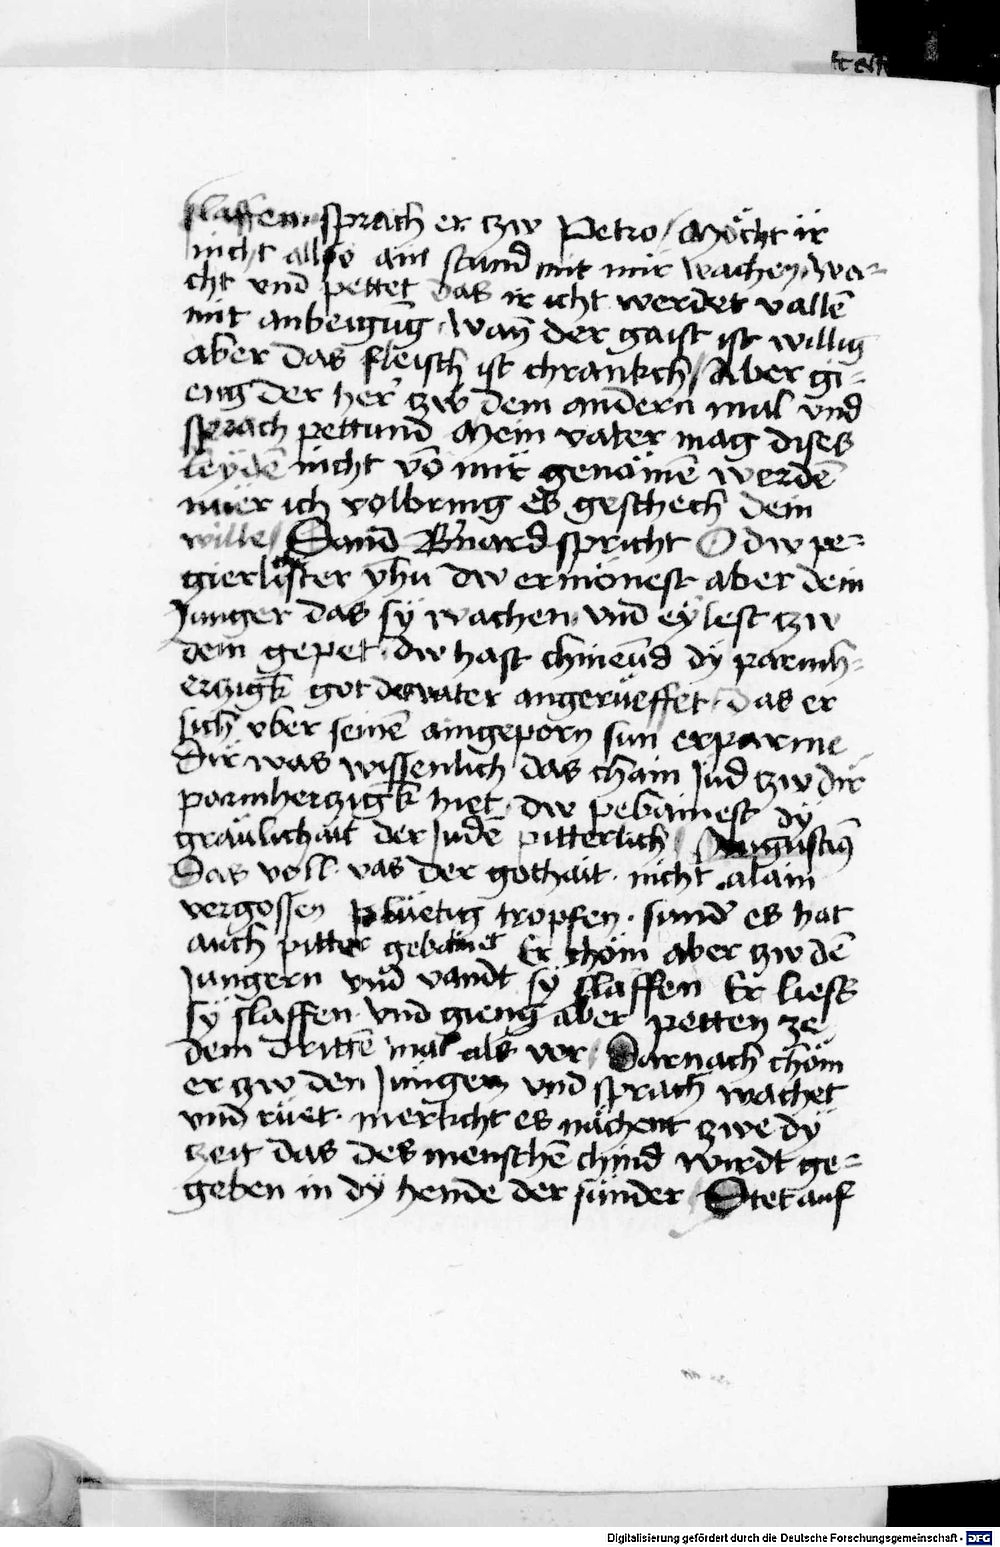 slaffen sprach er zw Petro / Möcht ir
nicht allso ain stund mit mir wachen · wa-
cht vnd pettet das ir icht werdet vallē
mit anbeigūg · Wañ der gaist ist willig
aber das fleisch ist chrankch / Aber gi-
eng der her zw dem andern mal vnd
sprach pettund Mein vater mag dises
leydē nicht vō mir genömē werdē
nuer ich volbring es geschech dein
wille / Sand Bnard spricht O dw pe-
gierlichster yhū dw ermönest aber dein
Junger das sy wachen vnd eylest tzw
dem gepet · dw hast chnieūd dy parmh-
ertzigk got den vater angerüeffet · das er
sich vber seinē aingeporn sun erparme
Dir was wissenlich das chain Jud tzw dir
parmhertzigk hiet · dw pebainest dy
gräulichait der Judē pitterlich / Augustinꝰ
Das voll vas der gothait · nicht alain
vergossen plüetig tropfen · sunder es hat
auch pitter gebainet Er chöm aber zw dē
Jungern vnd vandt sy slaffen Er liess
sy slaffen · vnd gieng aber petten ze
dem drittē mal als vor / Darnach chöm
er zw den Jungern vnd sprach wachet
vnd rüet · merkcht es nächent zwe dy
zeit das des menschē chind wirdt ge-
geben in dy hende der sünder / Stet auf
Digitalisierung gefördert durch die Deutsche Forschungsgemeinschaft - DFG